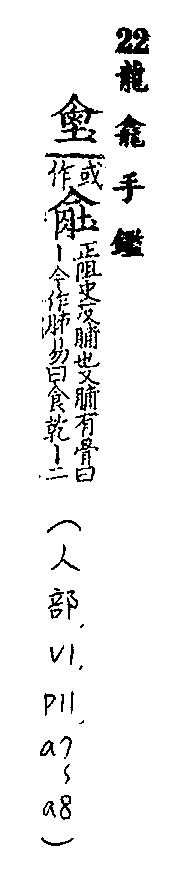 22龍龕手鑑
或作
正阻史反脯也又脯有骨曰
丨今作胏易曰食乾丨二
(人部, V1, P11, a7~a8)